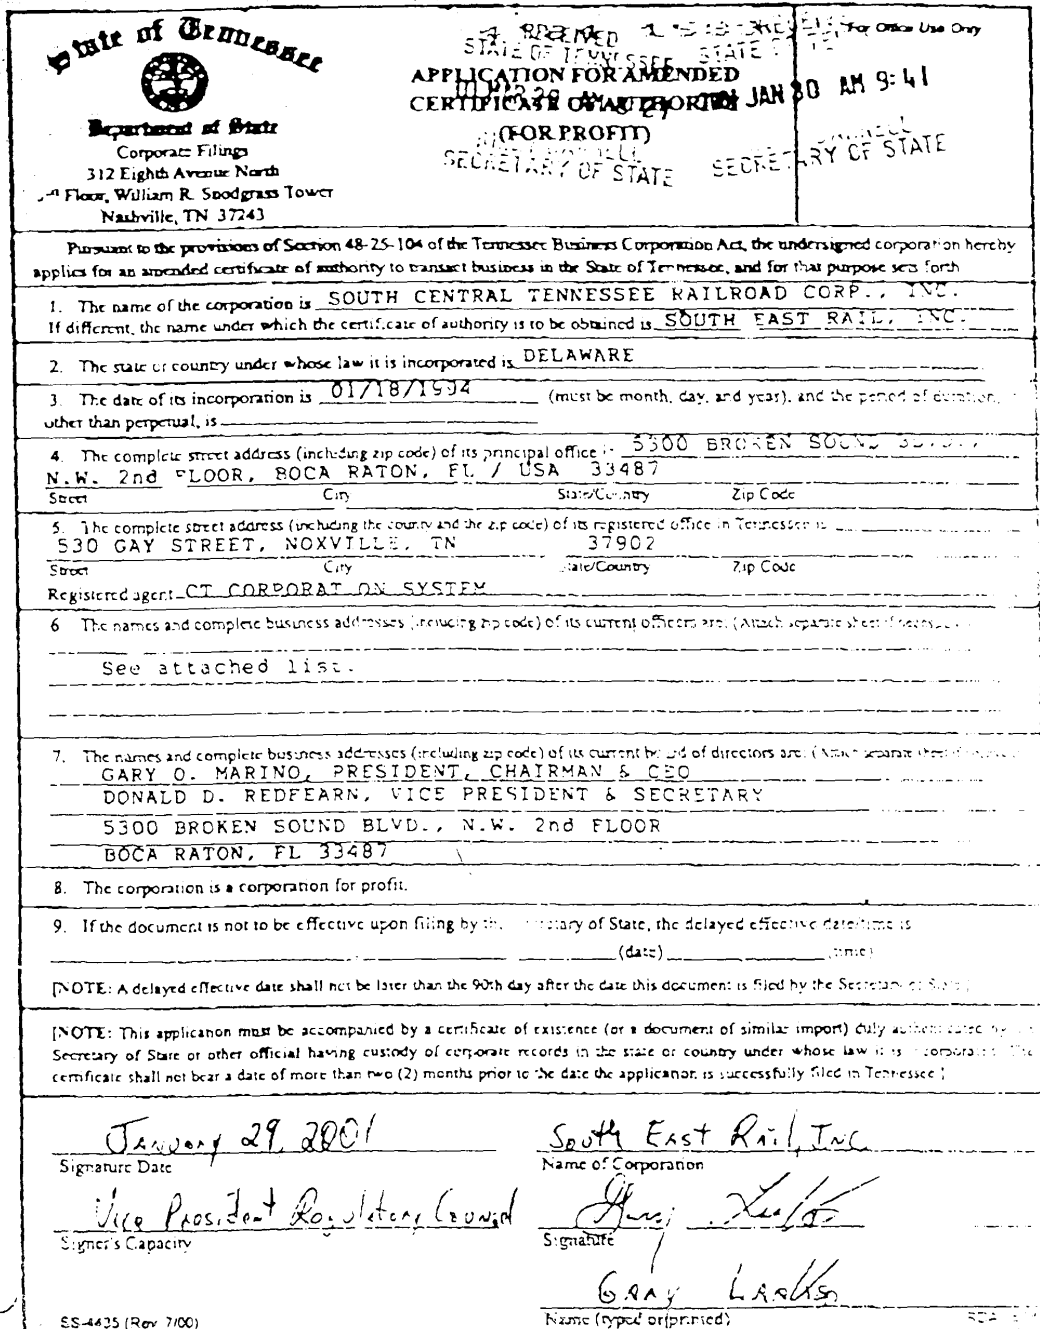 State of Tennessee
Department of State
Corporate Filings
312 Eighth Avenue North
Floor, William R. Snodgrass Tower
Nashville, TN 37243
RECEIVED
STATE OF TENNESSEE
APPLICATION FOR AMENDED
CERTIFICATE OF AUTHORITY
(FOR PROFIT)
SECRETARY OF STATE
For Office Use Only
STATE OF
JAN 30 AM 9:41
SECRETARY OF STATE
Pursuant to the provisions of Section 48-25-104 of the Tennessee Business Corporation Act, the undersigned corporation hereby
applies for an amended certificate of authority to transact business in the State of Tennessee, and for that purpose sets forth
1. The name of the corporation is SOUTH CENTRAL TENNESSEE RAILROAD CORP., INC.
If different, the name under which the certificate of authority is to be obtained is SOUTH EAST RAIL, INC.
2. The state or country under whose law it is incorporated is DELAWARE
3. The date of its incorporation is 01/18/1994 (must be month, day, and year), and the period of duration,
other than perpetual, is
4. The complete street address (including zip code) of its principal office is 5300 BROKEN SOUND
N.W. 2nd FLOOR, BOCA RATON, FL / USA 33487
Street City State/Country Zip Code
5. The complete street address (including the county and the zip code) of its registered office in Tennessee is
530 GAY STREET, NOXVILLE, TN 37902
Street City State/Country Zip Code
Registered agent CT CORPORAT ON SYSTEM
6 The names and complete business addresses (including zip code) of its current officers are: (Attach separate sheet if necessary
See attached list.
7. The names and complete business addresses (including zip code) of its current board of directors are: (Attach separate sheet if
GARY O. MARINO, PRESIDENT, CHAIRMAN & CEO
DONALD D. REDFEARN, VICE PRESIDENT & SECRETARY
5300 BROKEN SOUND BLVD., N.W. 2nd FLOOR
BOCA RATON, FL 33487
8. The corporation is a corporation for profit.
9. If the document is not to be effective upon filing by the Secretary of State, the delayed effective date/time is
(date) (time)
[NOTE: A delayed effective date shall not be later than the 90th day after the date this document is filed by the Secretary of State.]
[NOTE: This application must be accompanied by a certificate of existence (or a document of similar import) duly authenticated by
Secretary of State or other official having custody of corporate records in the state or country under whose law it is incorporated. The
certificate shall not bear a date of more than two (2) months prior to the date the application is successfully filed in Tennessee.]
January 29, 2001 South East Rail, Inc
Signature Date Name of Corporation
Vice President Regulatory Counsel
Signer's Capacity Signature
Gary Laakso
SS-4435 (Rev. 7/00) Name (typed or printed) RDA